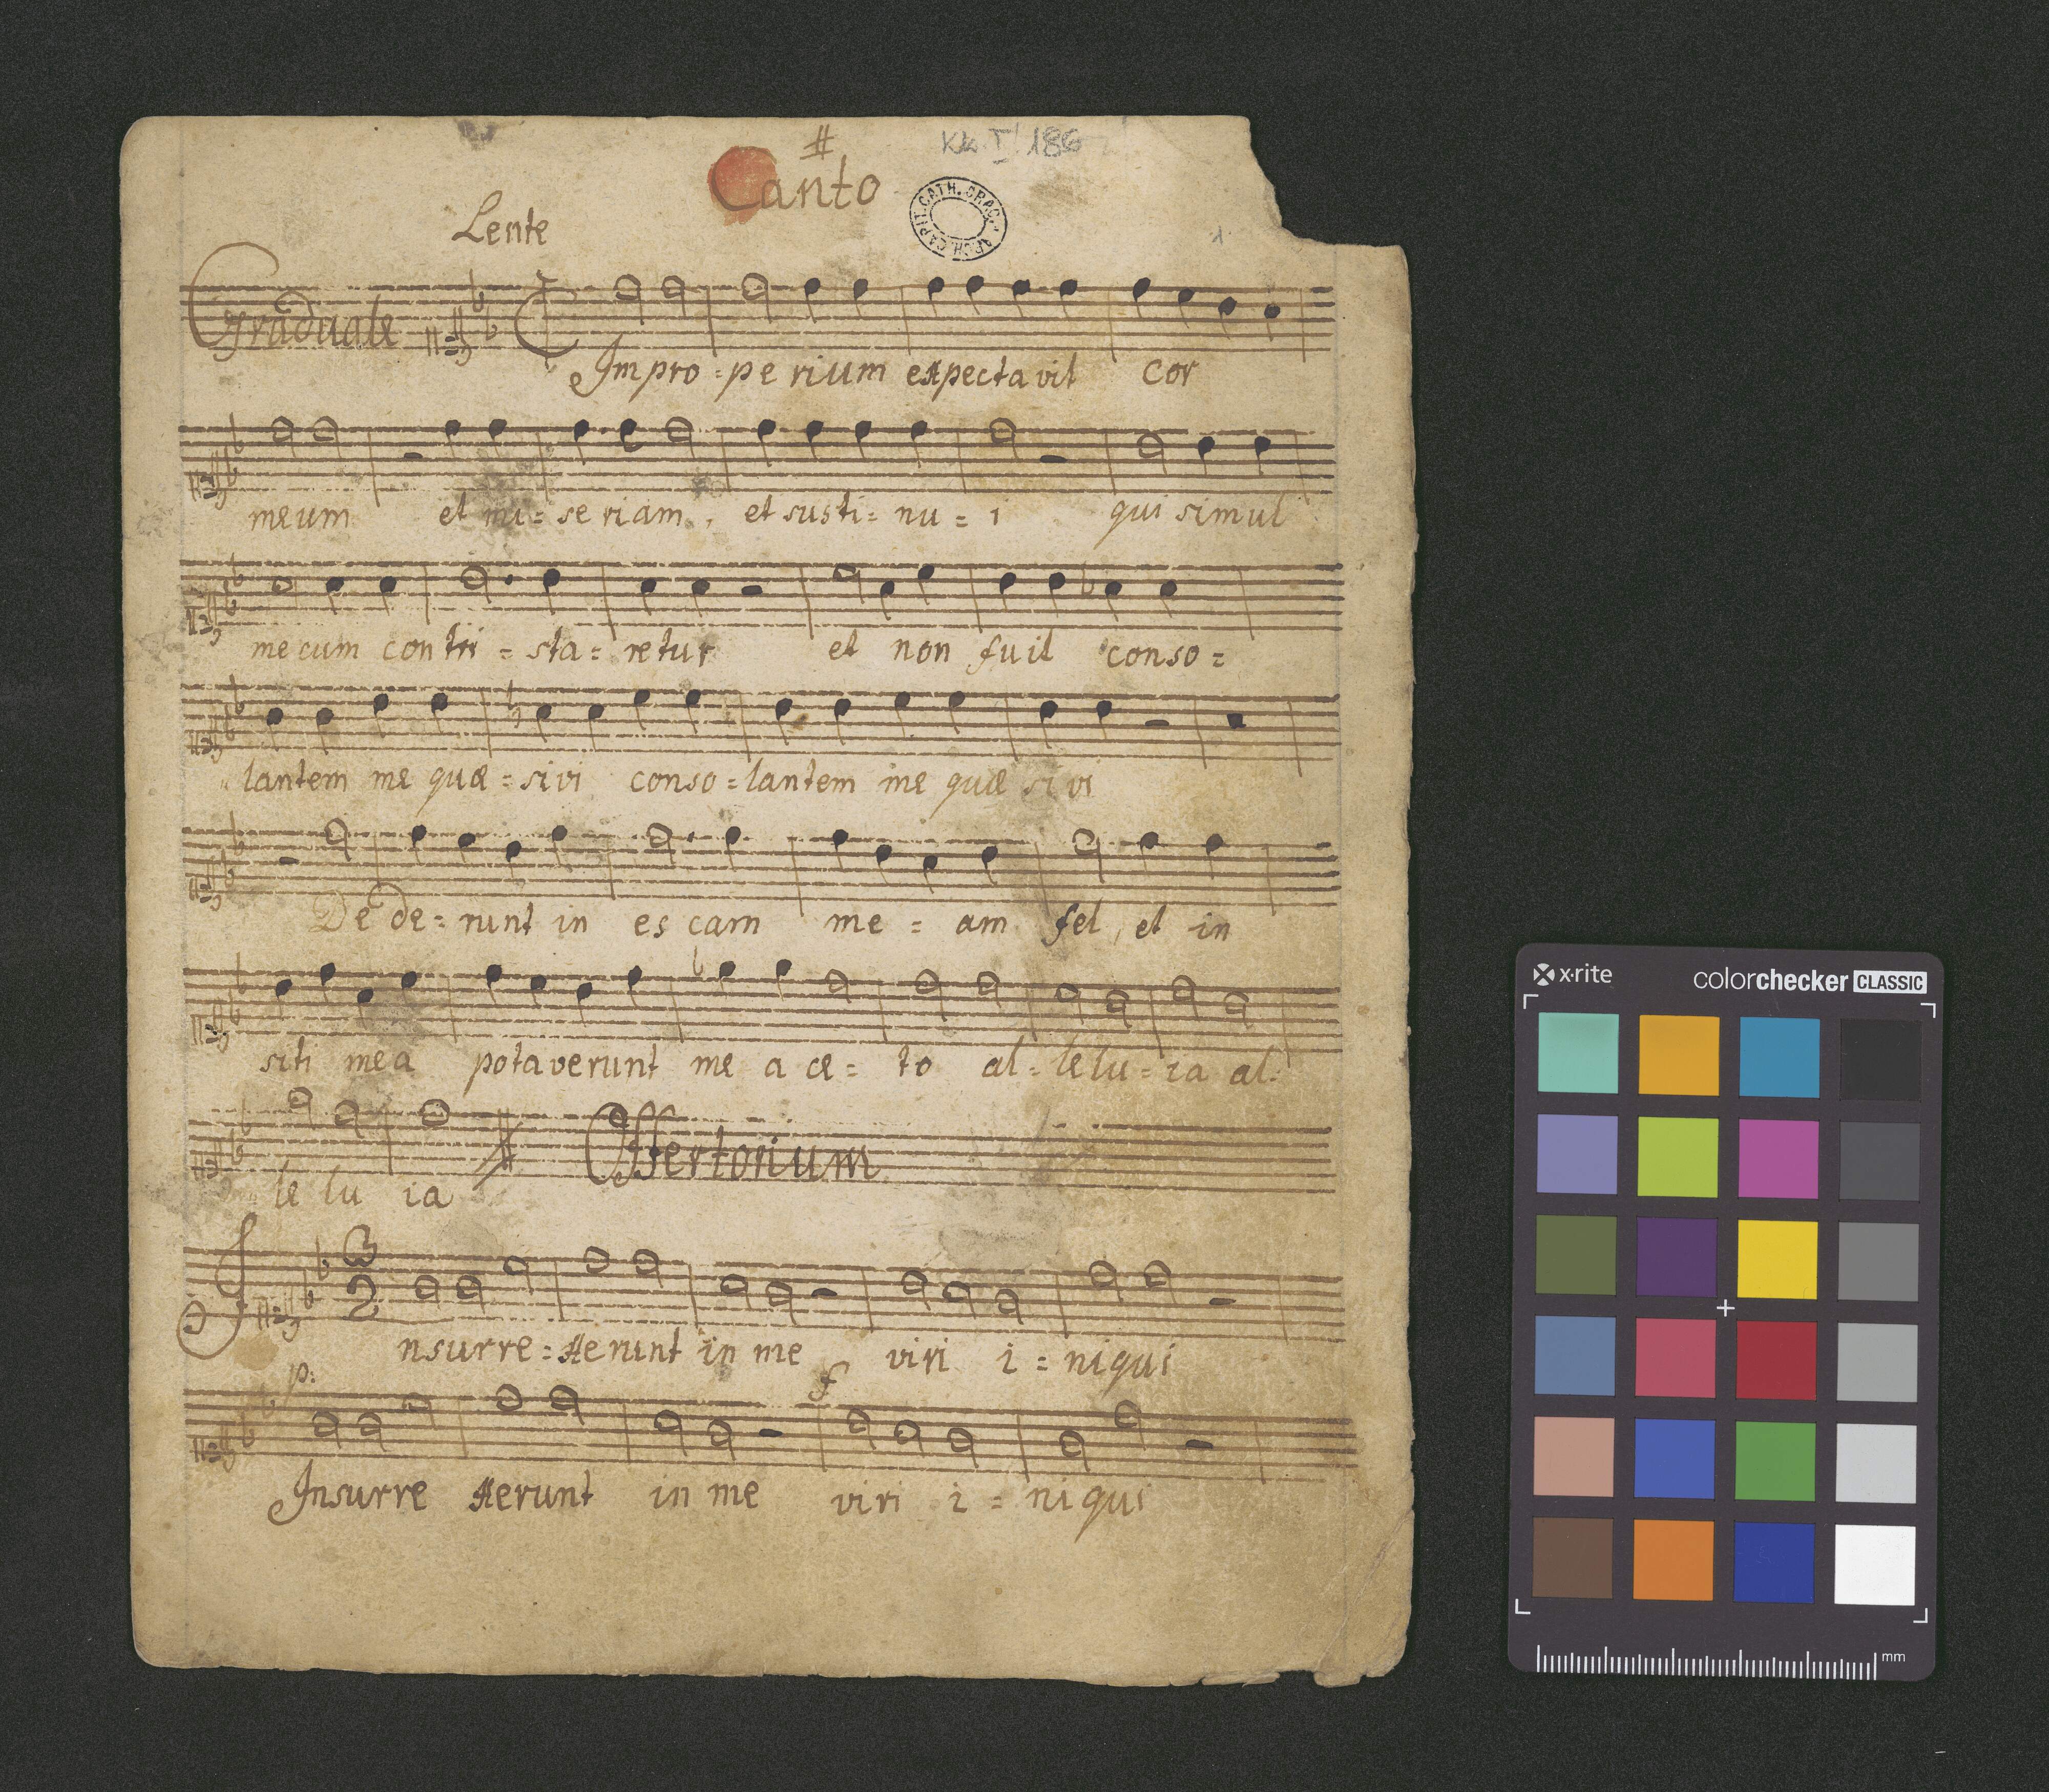 Kk I 186
Canto
ARCH. CAPIT. CATH. CRAC.
1.
Lente
Graduale
Impro=perium expectavit cor
meum et mi=seriam, et susti=nu=i qui simul
mecum contri=sta=retur et non fuit conso=
lantem me quæ=sivi conso=lantem me quæ sivi
De de=runt in es cam me=am fel, et in
siti mea potaverunt me a ce=to al=lelu=ia al=
le lu ia Offertorium
3
2
Insurre=xerunt in me viri i=niqui
p: f
Insurre xerunt in me viri i=niqui
x·rite colorchecker CLASSIC
mm